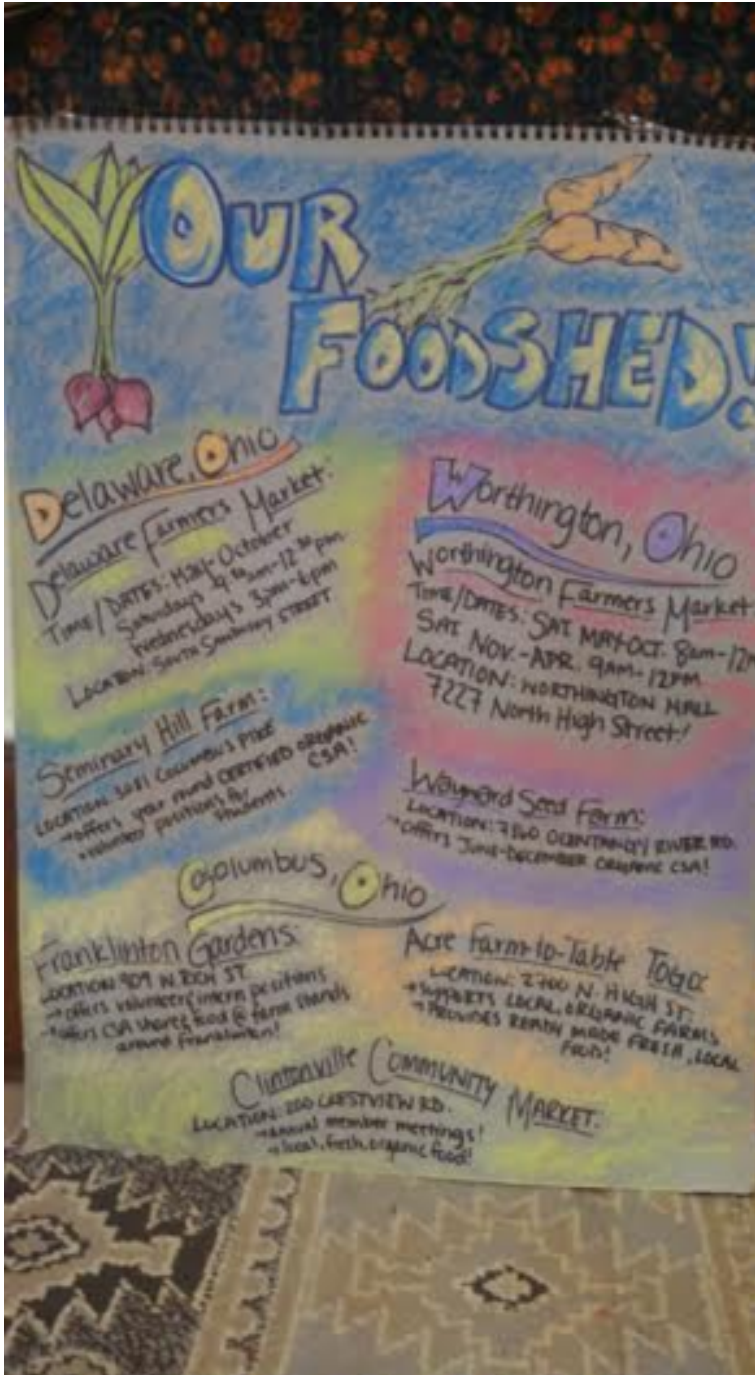 OUR
FOODSHED!
Delaware, Ohio
Delaware Farmers Market:
TIME/DATES: MAY-October
Saturdays am-12 pm
Wednesdays 3pm-6pm
LOCATION: SOUTH SANDUSKY STREET
Seminary Hill Farm:
LOCATION: COLUMBUS PIKE
→offers year round CERTIFIED ORGANIC
CSA!
→volunteer positions for
students
Worthington, Ohio
Worthington Farmers Market:
TIME/DATES: SAT MAY-OCT. 8am-12pm
SAT NOV.-APR. 9AM-12PM
LOCATION: WORTHINGTON MALL
7227 North High Street!
Wayward Seed Farm:
LOCATION: OLENTANGY RIVER RD.
→OFFERS JUNE-DECEMBER ORGANIC CSA!
Columbus, Ohio
Franklinton Gardens:
LOCATION 909 W. RICH ST.
→offers volunteer/intern positions
→offers CSA shares, food @ farm stands
around Franklinton!
Acre Farm-to-Table TOGO:
LOCATION: 2700 N. HIGH ST.
→SUPPORTS LOCAL, ORGANIC FARMS
→PROVIDES READY MADE FRESH, LOCAL
FOOD!
Clintonville COMMUNITY MARKET:
LOCATION: 200 CRESTVIEW RD.
→annual member meetings!
→local, fresh, organic food!